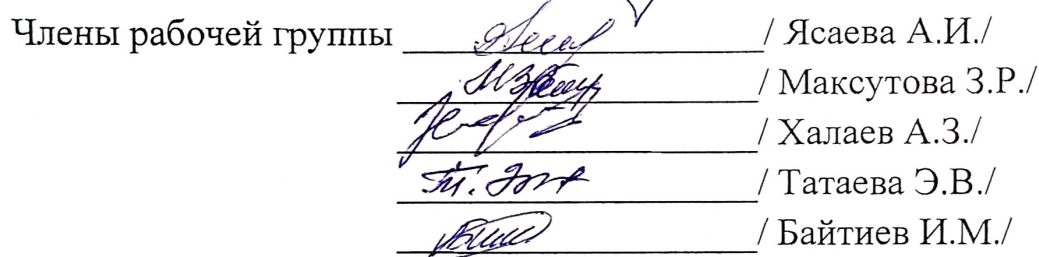 Члены рабочей группы / Ясаева А.И./
/ Максутова З.Р./
/ Халаев А.З./
/ Татаева Э.В./
/ Байтиев И.М./